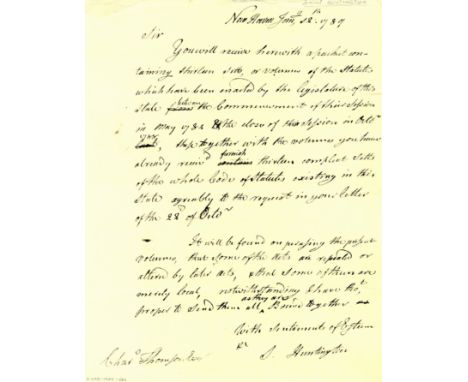 New Haven Jany 12th 1789
Sir
You will recive herewith a packet con-
taining thirteen Setts, or volumes of the Statutes
which have been enacted by the Legislature of this
State between the Commencement of their Session
in May 1784 & the close of their Session in Octr
these together with the volumes you have
already receivd furnish thirteen compleat Setts
of the whole Code of Statutes existing in this
State agreably to the request in your letter
of the 22d of Octr
It will be found on perusing the present
volumes, that some of the Acts are repealed or
altered by later Acts, & that some of them are
merely local, notwithstanding I have thot
proper to Send them all, as they are Bound together
With Sentiments of Esteem
&c S. Huntington
Chas Thomson Esr